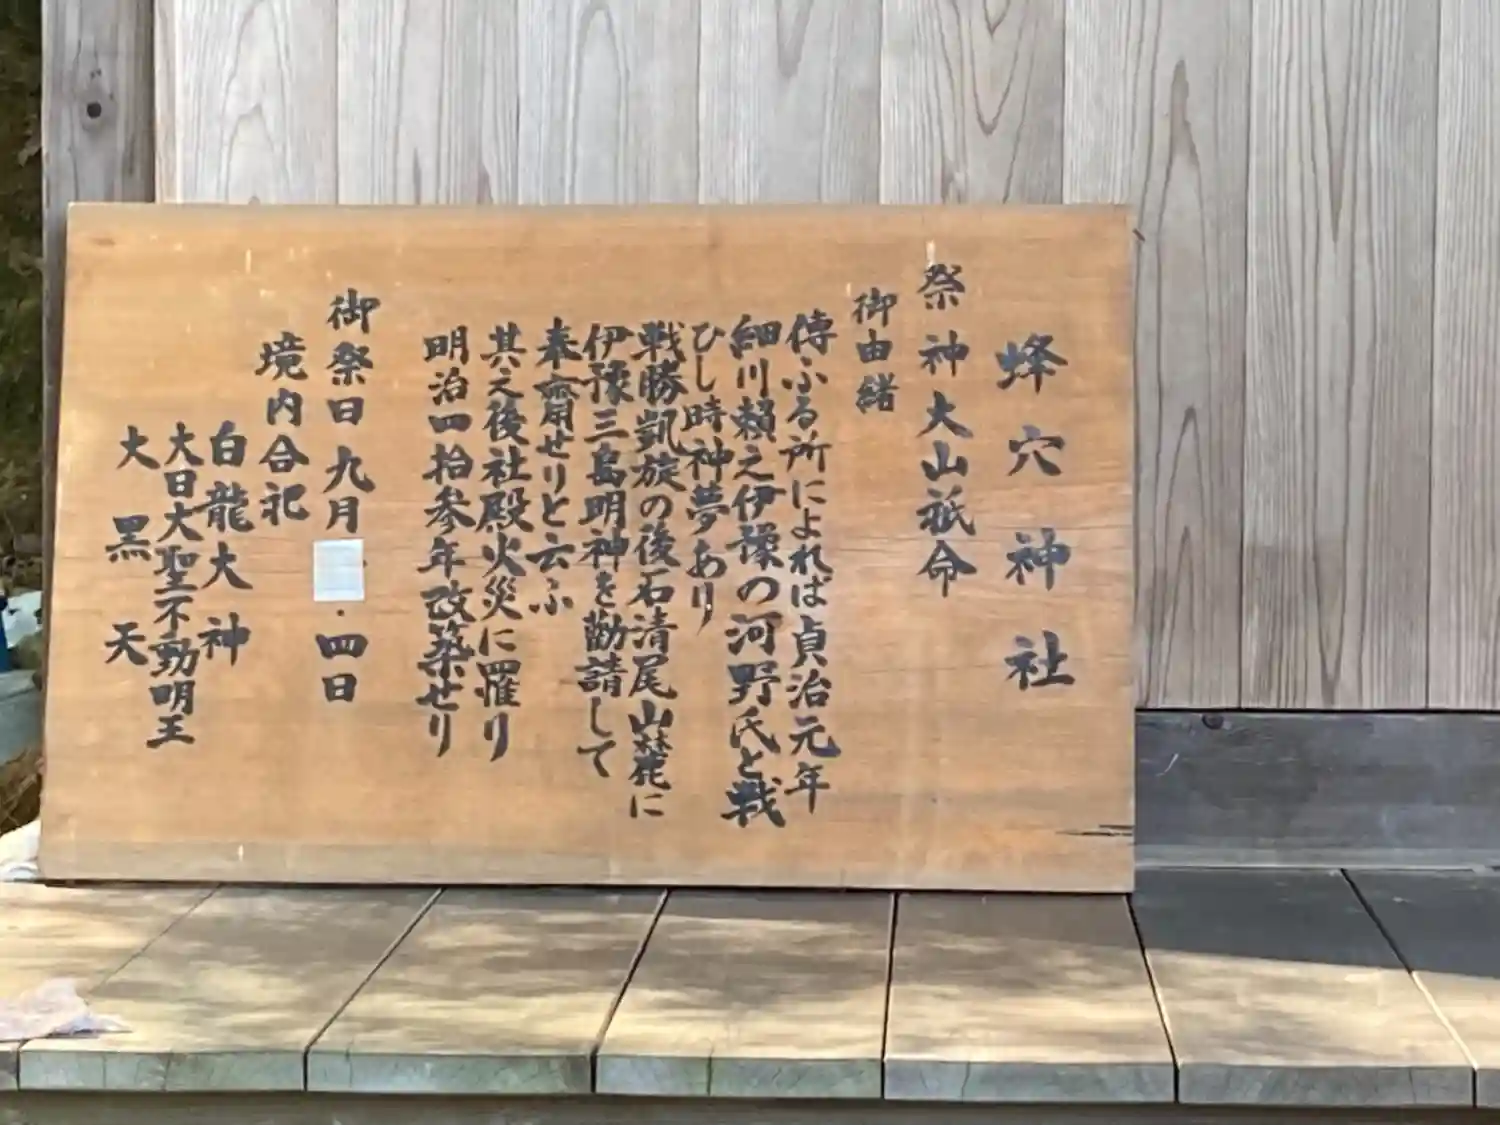 蜂穴神社
祭神大山祇命
御由緒
傳ふる所によれば貞治元年
細川賴之伊豫の河野氏と戦
ひし時神夢あり
戦勝凱旋の後石清尾山麓に
伊豫三島明神を勧請して
奉齋せりと云ふ
其之後社殿火災に罹り
明治四拾参年改築せり
御祭日九月・四日
境内合祀
白龍大神
大日大聖不動明王
大黒天